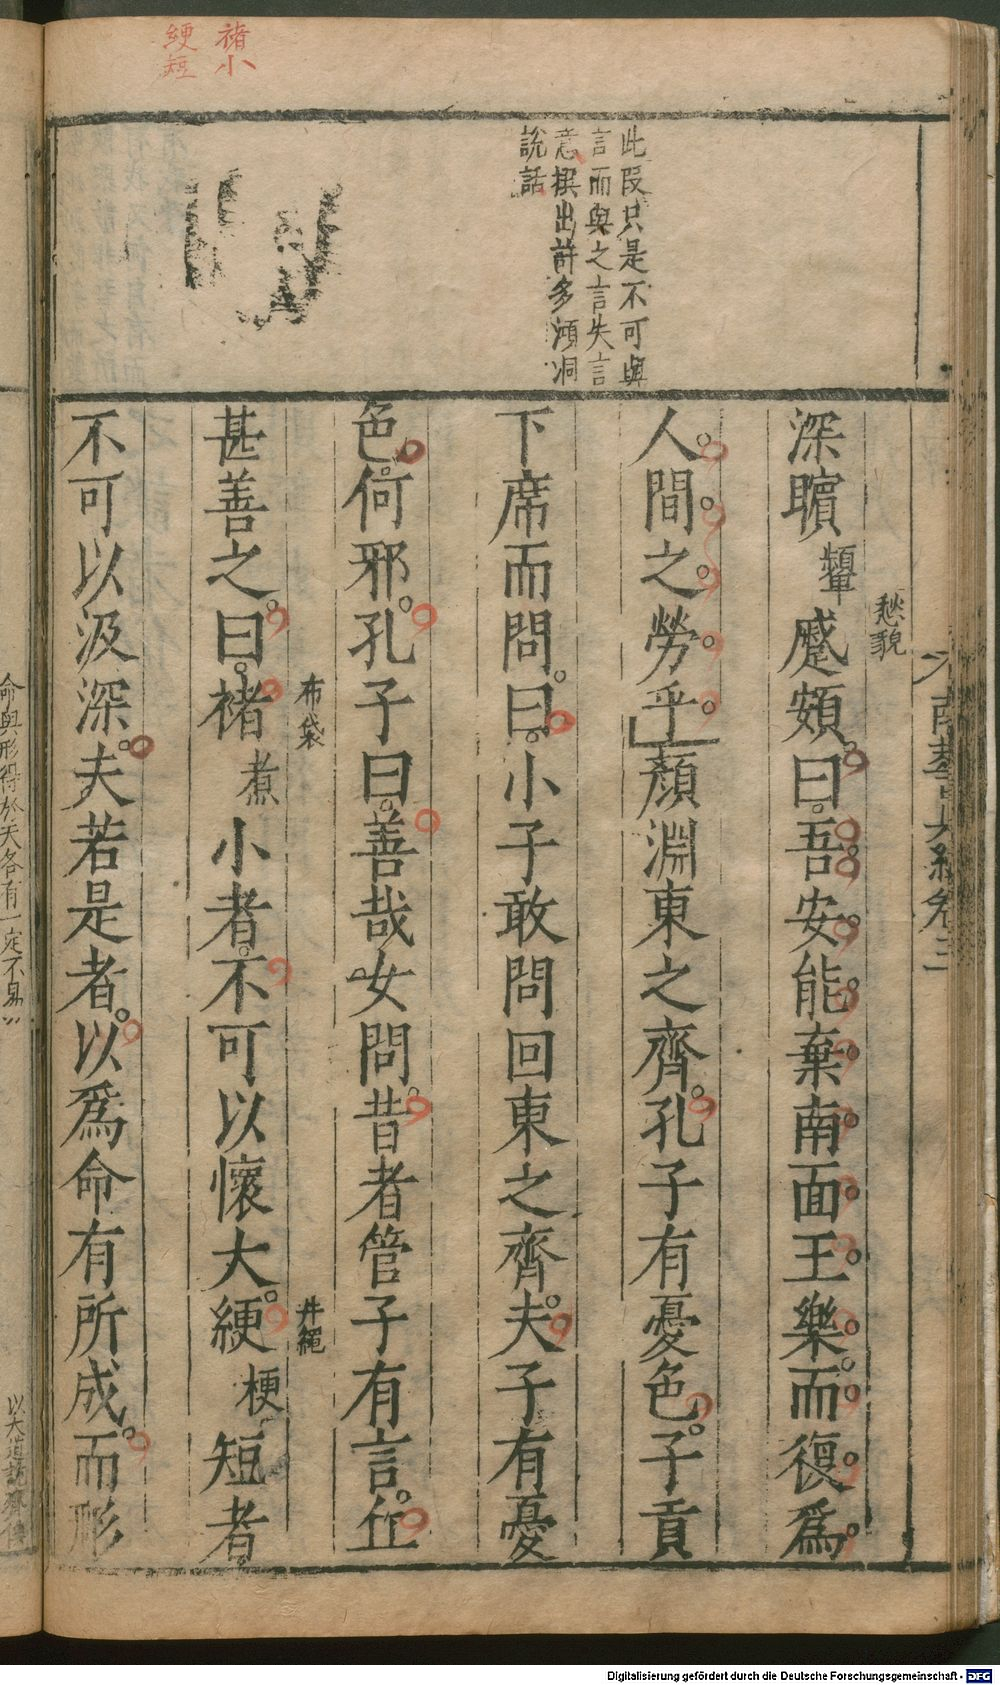 褚小
綆短
此段只是不可與
言而與之言失言
意撰出許多澒洞
說話
深矉顰蹙頞曰吾安能棄南面王樂而復爲
愁貌
人間之勞乎顏淵東之齊孔子有憂色子貢
下席而問曰小子敢問回東之齊夫子有憂
色何邪孔子曰善哉女問昔者管子有言丘
甚善之曰褚煮小者不可以懷大綆梗短者
布袋
井繩
不可以汲深夫若是者以爲命有所成而形
南華真經卷三
命與形得於天各有一定不易
Digitalisierung gefördert durch die Deutsche Forschungsgemeinschaft - DFG